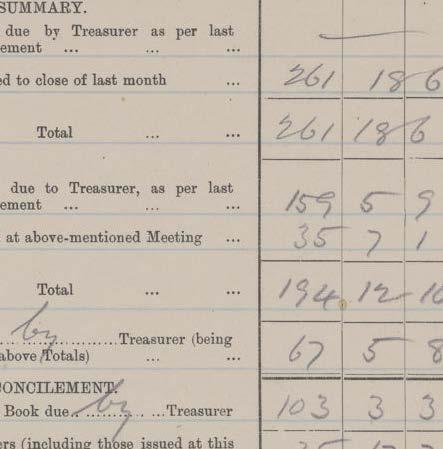 SUMMARY.
due by Treasurer as per last
ement ... ... ...
ed to close of last month ... 261 18 6
Total ... ... 261 18 6
due to Treasurer, as per last
ement ... ... ... 159 5 9
at above-mentioned Meeting ... 35 7 1
Total ... ... 194 12 10
by Treasurer (being
above Totals) ... ... 67 5 8
CONCILEMENT.
Book due by Treasurer 103 3 3
ers (including those issued at this